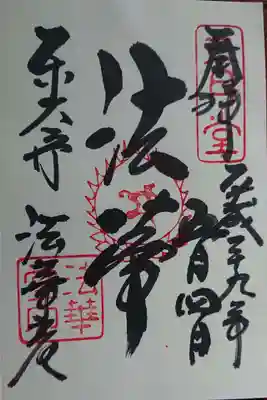 奉拝
平成二十九年
五月四日
法華
東大寺 法華堂
法華